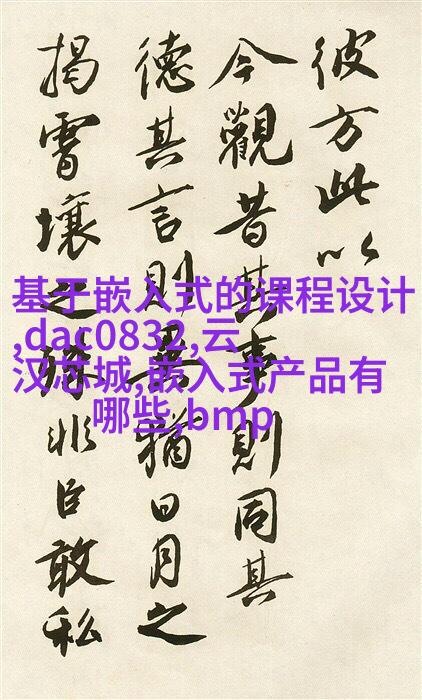 彼方此以
今觀昔其事則同其
德其言則異猶日月之
揭霄壤之殊非臣敢私
基于嵌入式的课程设计
,dac0832,云
汉芯城,嵌入式产品有
哪些,bmp